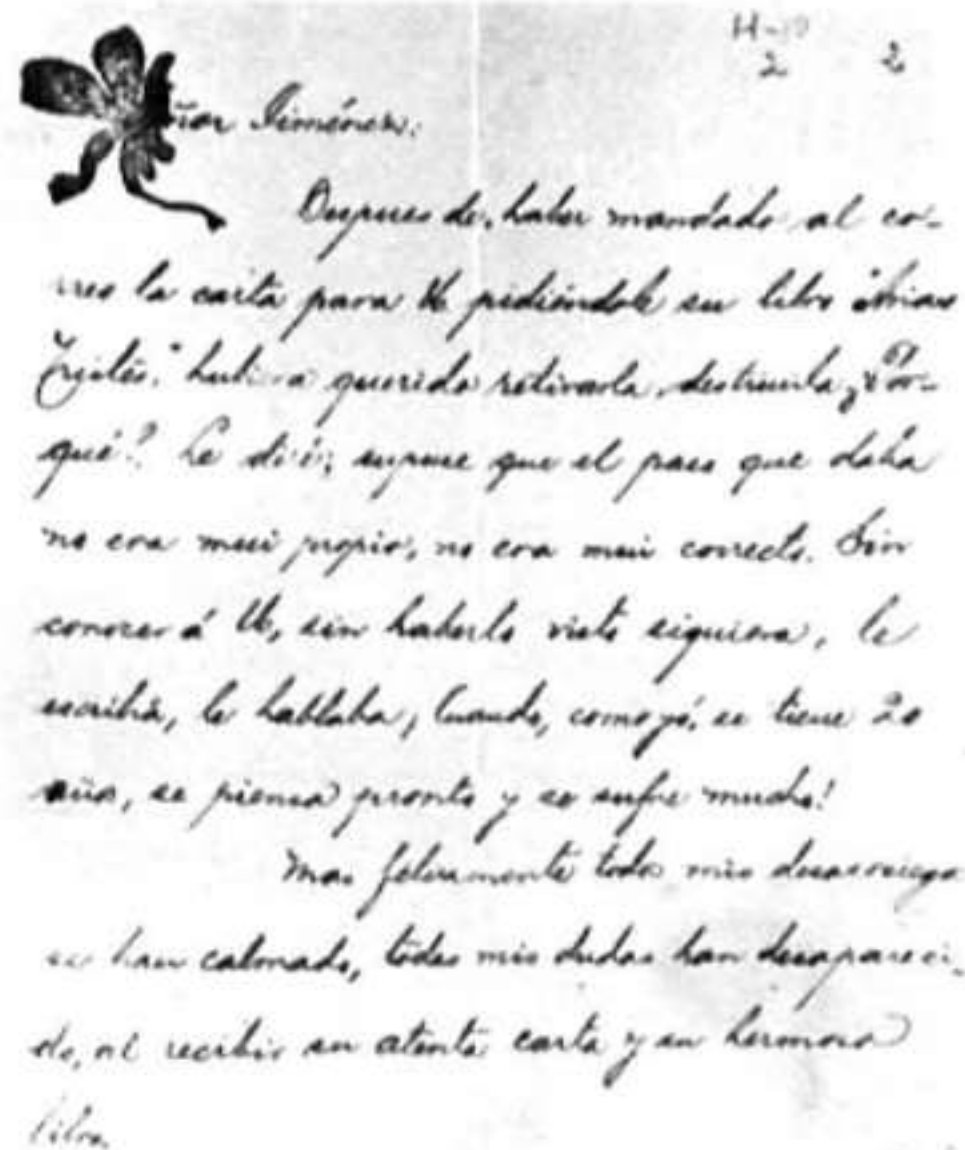 2 2
Señor Jiménez:
Despues de, haber mandado al co-
rreo la carta para Ud. pidiéndole su libro "Arias
Tristes," hubiera querido retirarla, destruirla, ¿Por-
qué? Le diré; supuse que el paso que daba
no era mui propio, no era mui correcto. Sin
conocer á Ud., sin haberlo visto siquiera, le
escribía, le hablaba; Cuando, como yó, se tiene 20
años, se piensa pronto y se sufre mucho!
Mas felizmente todos mis desasosiegos
se han calmado, todas mis dudas han desapareci-
do, al recibir su atenta carta y su hermoso
libro.